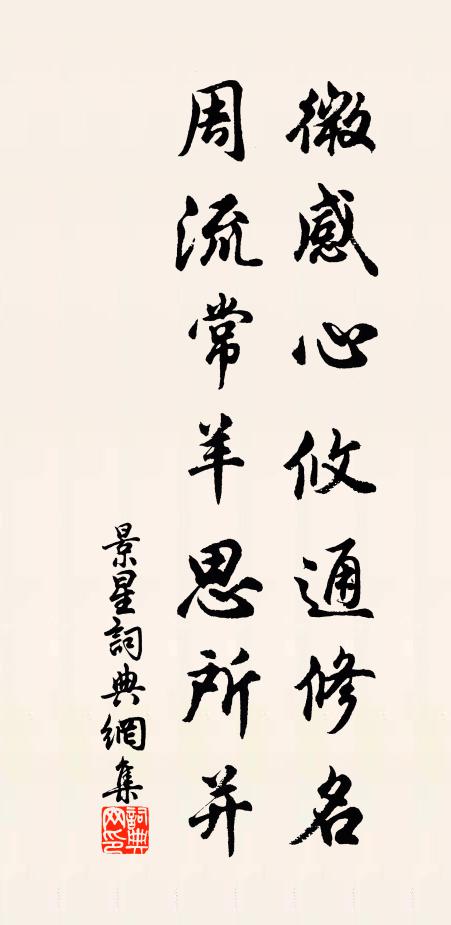 微感心攸通修名
周流常羊思所并
景星詞典網集
詞典網印